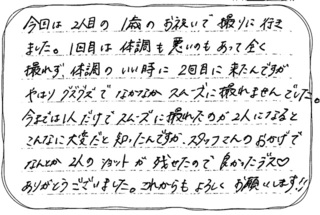 今回は2人目の1歳のお祝いで撮りに行き
ました。1回目は体調も悪いのもあって全く
撮れず、体調のいい時に2回目に来たんですが
やはりグズグズでなかなかスムーズに撮れませんでした。
今までは1人だけでスムーズに撮れたのが2人になると
こんなに大変だと知ったんですが、スタッフさんのおかげで
なんとか2人のショットが残せたので良かったデス♡
ありがとうございました。これからもよろしくお願いします!!